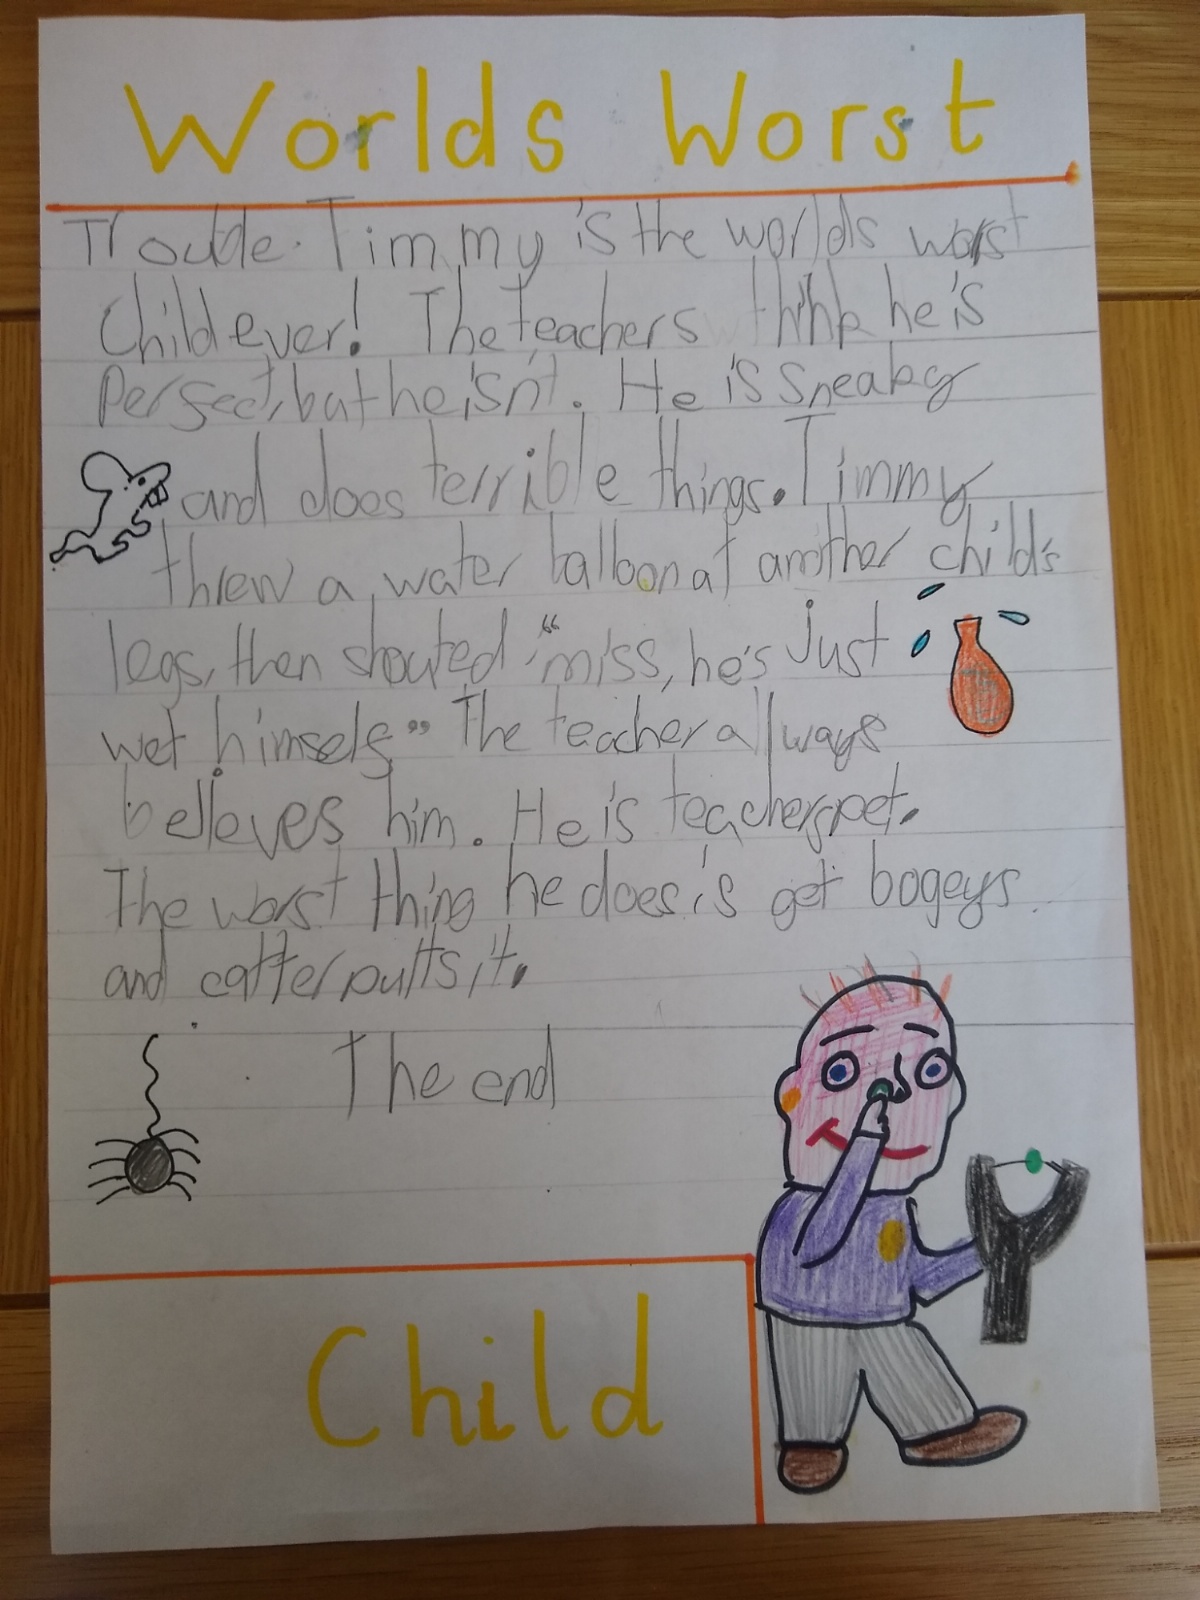 Worlds Worst
Trouble. Timmy is the worlds worst
Child ever! The teachers think he is
Perfect, but he isn't. He is Sneaky
and does terrible things. Timmy
threw a water balloon at another child's
legs, then shouted, "miss, he's just
wet himself" The teacher allways
believes him. He is teacherspet.
The worst thing he does is get bogeys
and catterpults it.
The end
Child